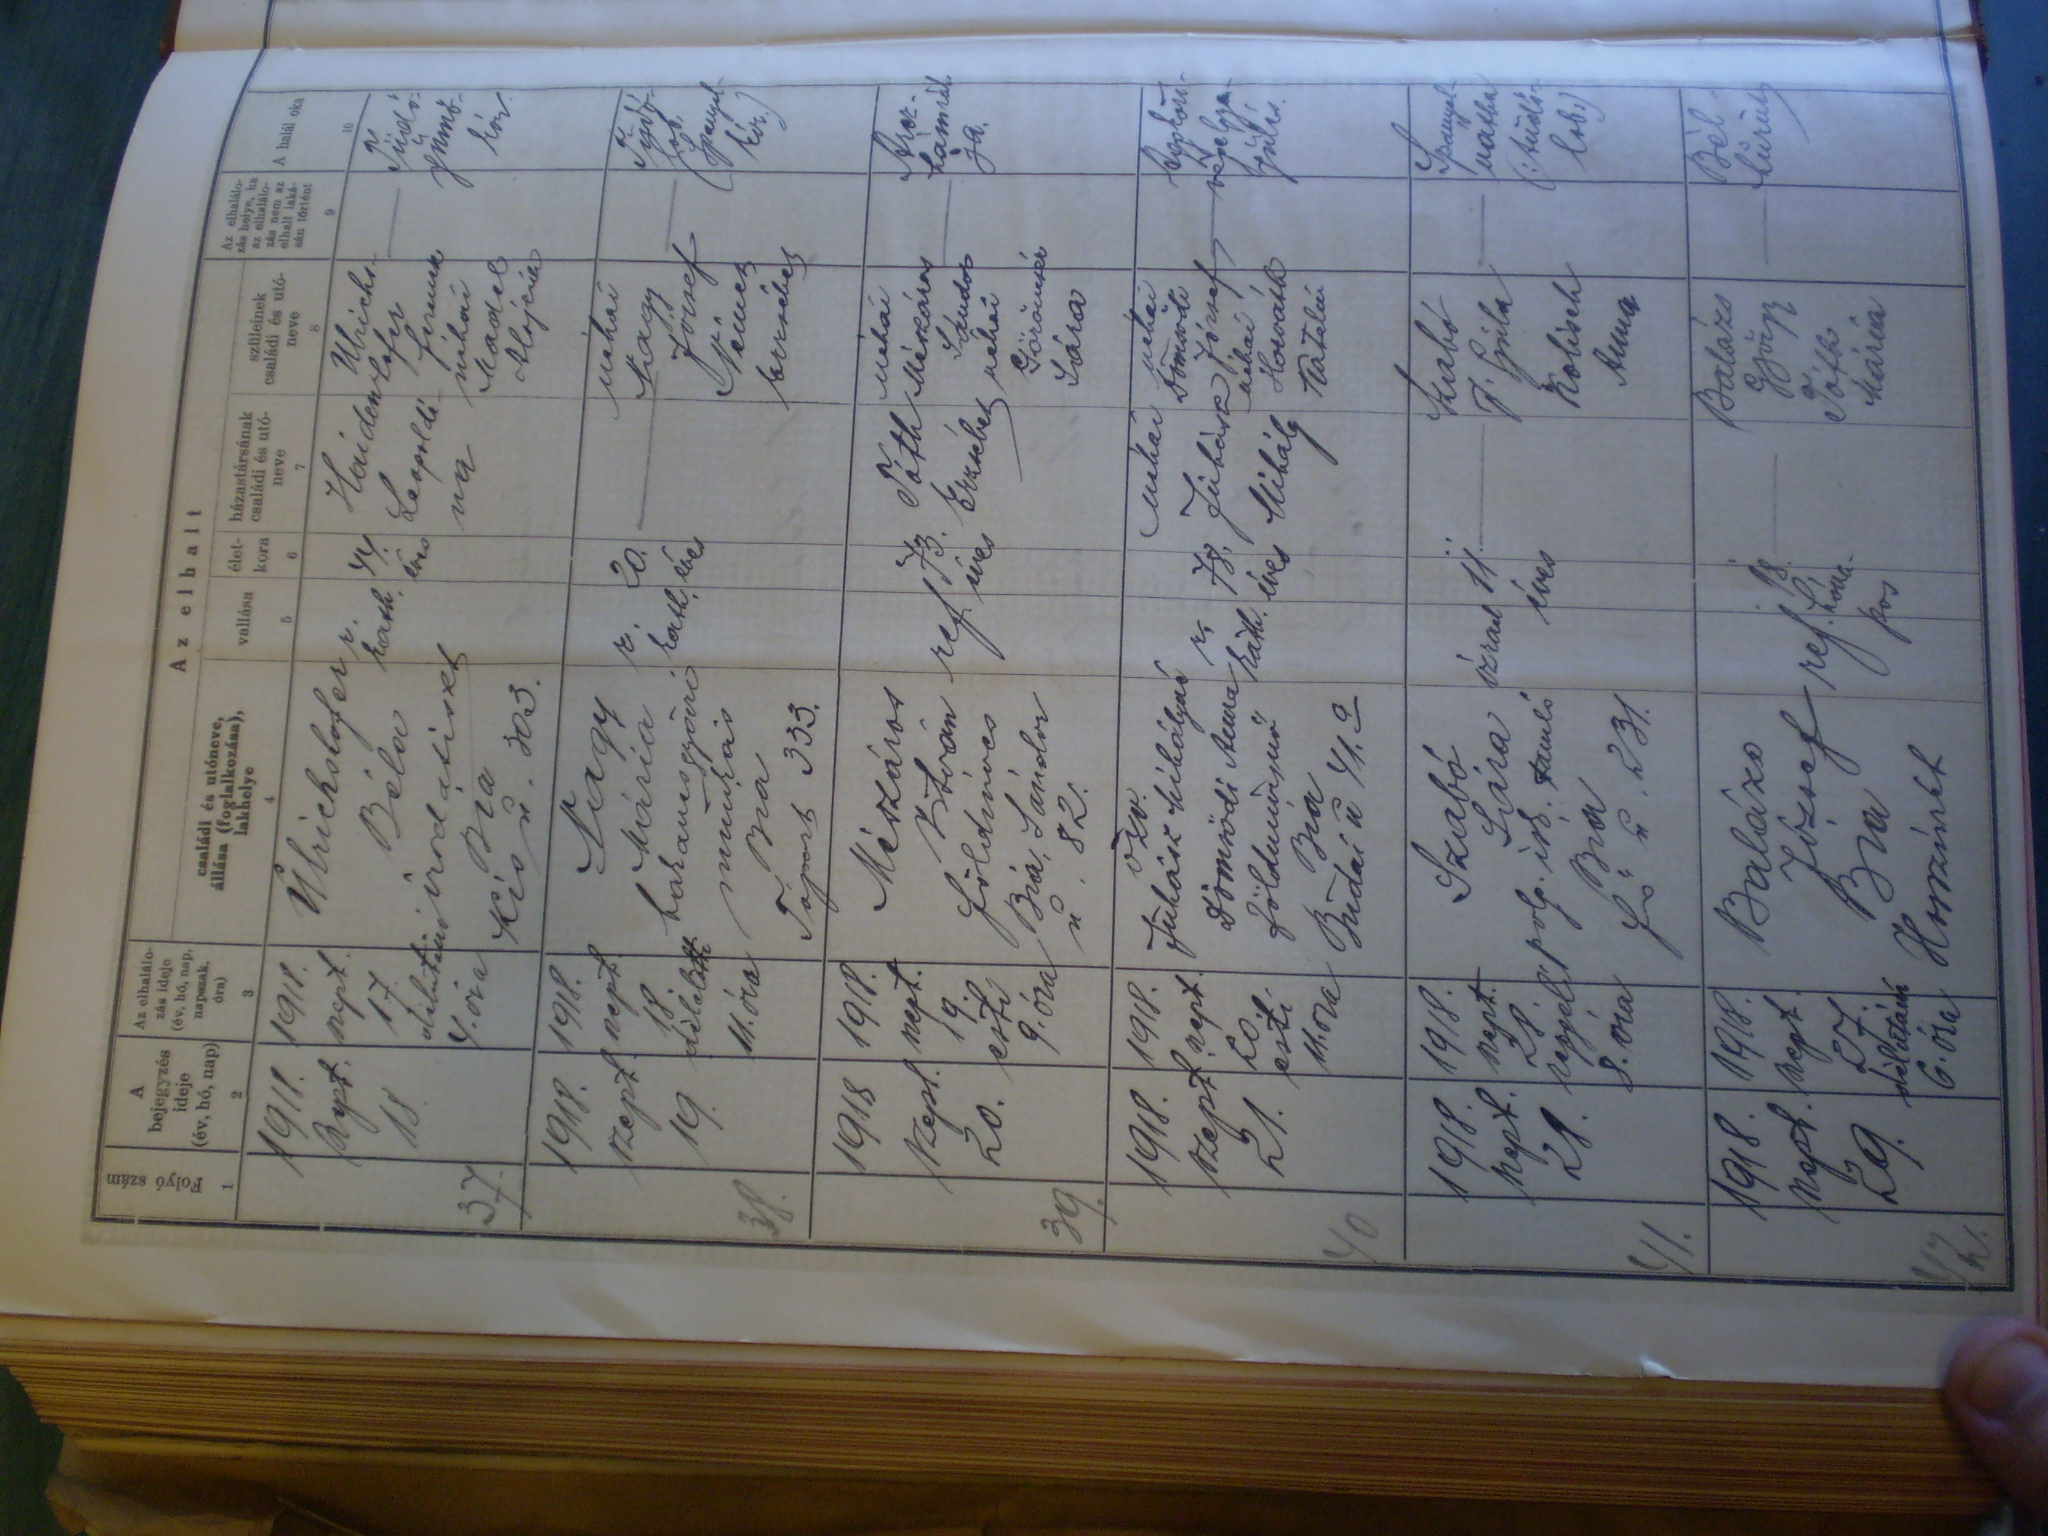 Az elhalt
Folyó szám
A bejegyzés ideje (év, hó, nap)
Az elhalálo-
zás ideje
(év, hó, nap,
napszak,
óra)
családi és utóneve,
állása (foglalkozása),
lakhelye
vallása
élet-
kora
házastársának
családi és utó-
neve
szüleinek
családi és utó-
neve
Az elhalálo-
zás helye, ha
az elhaláló-
zás nem az
elhalt laká-
sán történt
A halál oka
1 2 3 4 5 6 7 8 9 10
37.
1918.
Szept.
18.
1918.
szept.
17.
délutáni
4. óra
Ulrichshofer
Béla
irodatiszt
Bia
Kis u. 303.
r.
kath.
44
éves
Heiden
Leopoldi-
na
Ulrichs-
hofer
Ferencz
néhai
Madel
Alojzia
Tüdő-
gümő-
kór.
38.
1918.
szept.
19.
1918.
szept.
18.
délelőtt
11. óra
Nagy
Mária
munkás
Bia
333.
r.
kath.
20.
éves
néhai
Nagy
József
Nemes
Erzsébet
Tüdő-
lob.
(Spanyol-
kór.)
39.
1918
Szept.
20.
1918.
szept.
19.
esti
9. óra
Mészáros
István
földmives
Bia, Sándor
u. 82.
ref
73.
éves
Tóth
Erzsébet
néhai
Mészáros
Sándor
néhai
Sára
40
1918.
szept.
21.
1918.
szept.
20.
esti
11. óra
özv.
Juhász Mihályné
Dömödi Anna
földmüvesnő
Bia
Budai u 41. a
r.
kath.
78.
éves
néhai
Juhász
Mihály
néhai
Dömödi
József
néhai
Horváth
Katalin
41.
1918.
szept.
28.
1918.
szept.
28.
reggeli
8. óra
Szabó
Sára
polg. isk. tanuló
Bia
Fő u. 231.
izrael
11.
éves
Szabó
Gyula
Kolisch
Anna
Spanyol-
nátha
(tüdő-
lob.)
42.
1918.
szept.
29.
1918.
szept.
27.
délutáni
6. óra
Balázs
József
Bia
ref.
hóna-
pos
Balázs
György
Tóth
Mária
Bél-
hurut